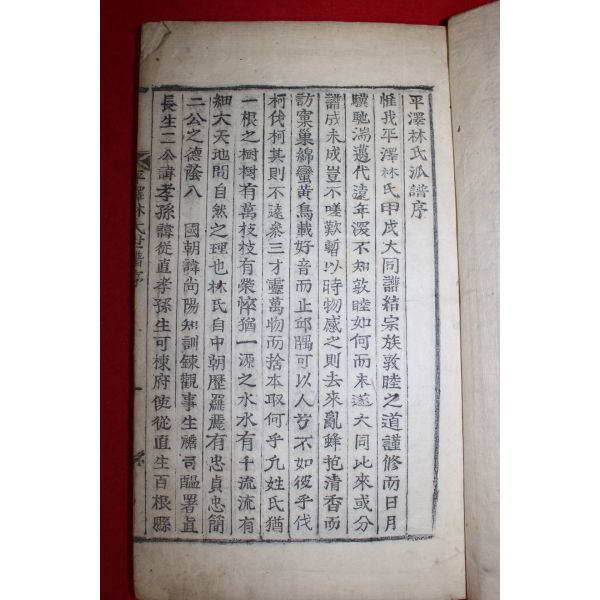 平澤林氏派譜序
惟我平澤林氏甲戌大同譜結宗族敦睦之道謹修而日月
驥馳湍邁代遠年深不知敦睦如何而未遂大同此來或分
譜成未成豈不嗟歎暫以時物感之則去來亂蜂抱清香而
訪窠巢綿蠻黃鳥載好音而止邱隅可以人兮不如彼乎伐
柯伐柯其則不遠叅三才靈萬物而捨本取何乎凡姓氏猶
一根之樹樹有萬枝枝有榮悴猶一源之水水有千流流有
細大天地間自然之理也林氏自中朝歷羅麗有忠貞忠簡
二公之德蔭入國朝諱尙陽知訓鍊觀事生 司 署直
長生二公諱孝孫諱從直孝孫生可棟府使從直生百根縣
平澤林氏世譜序